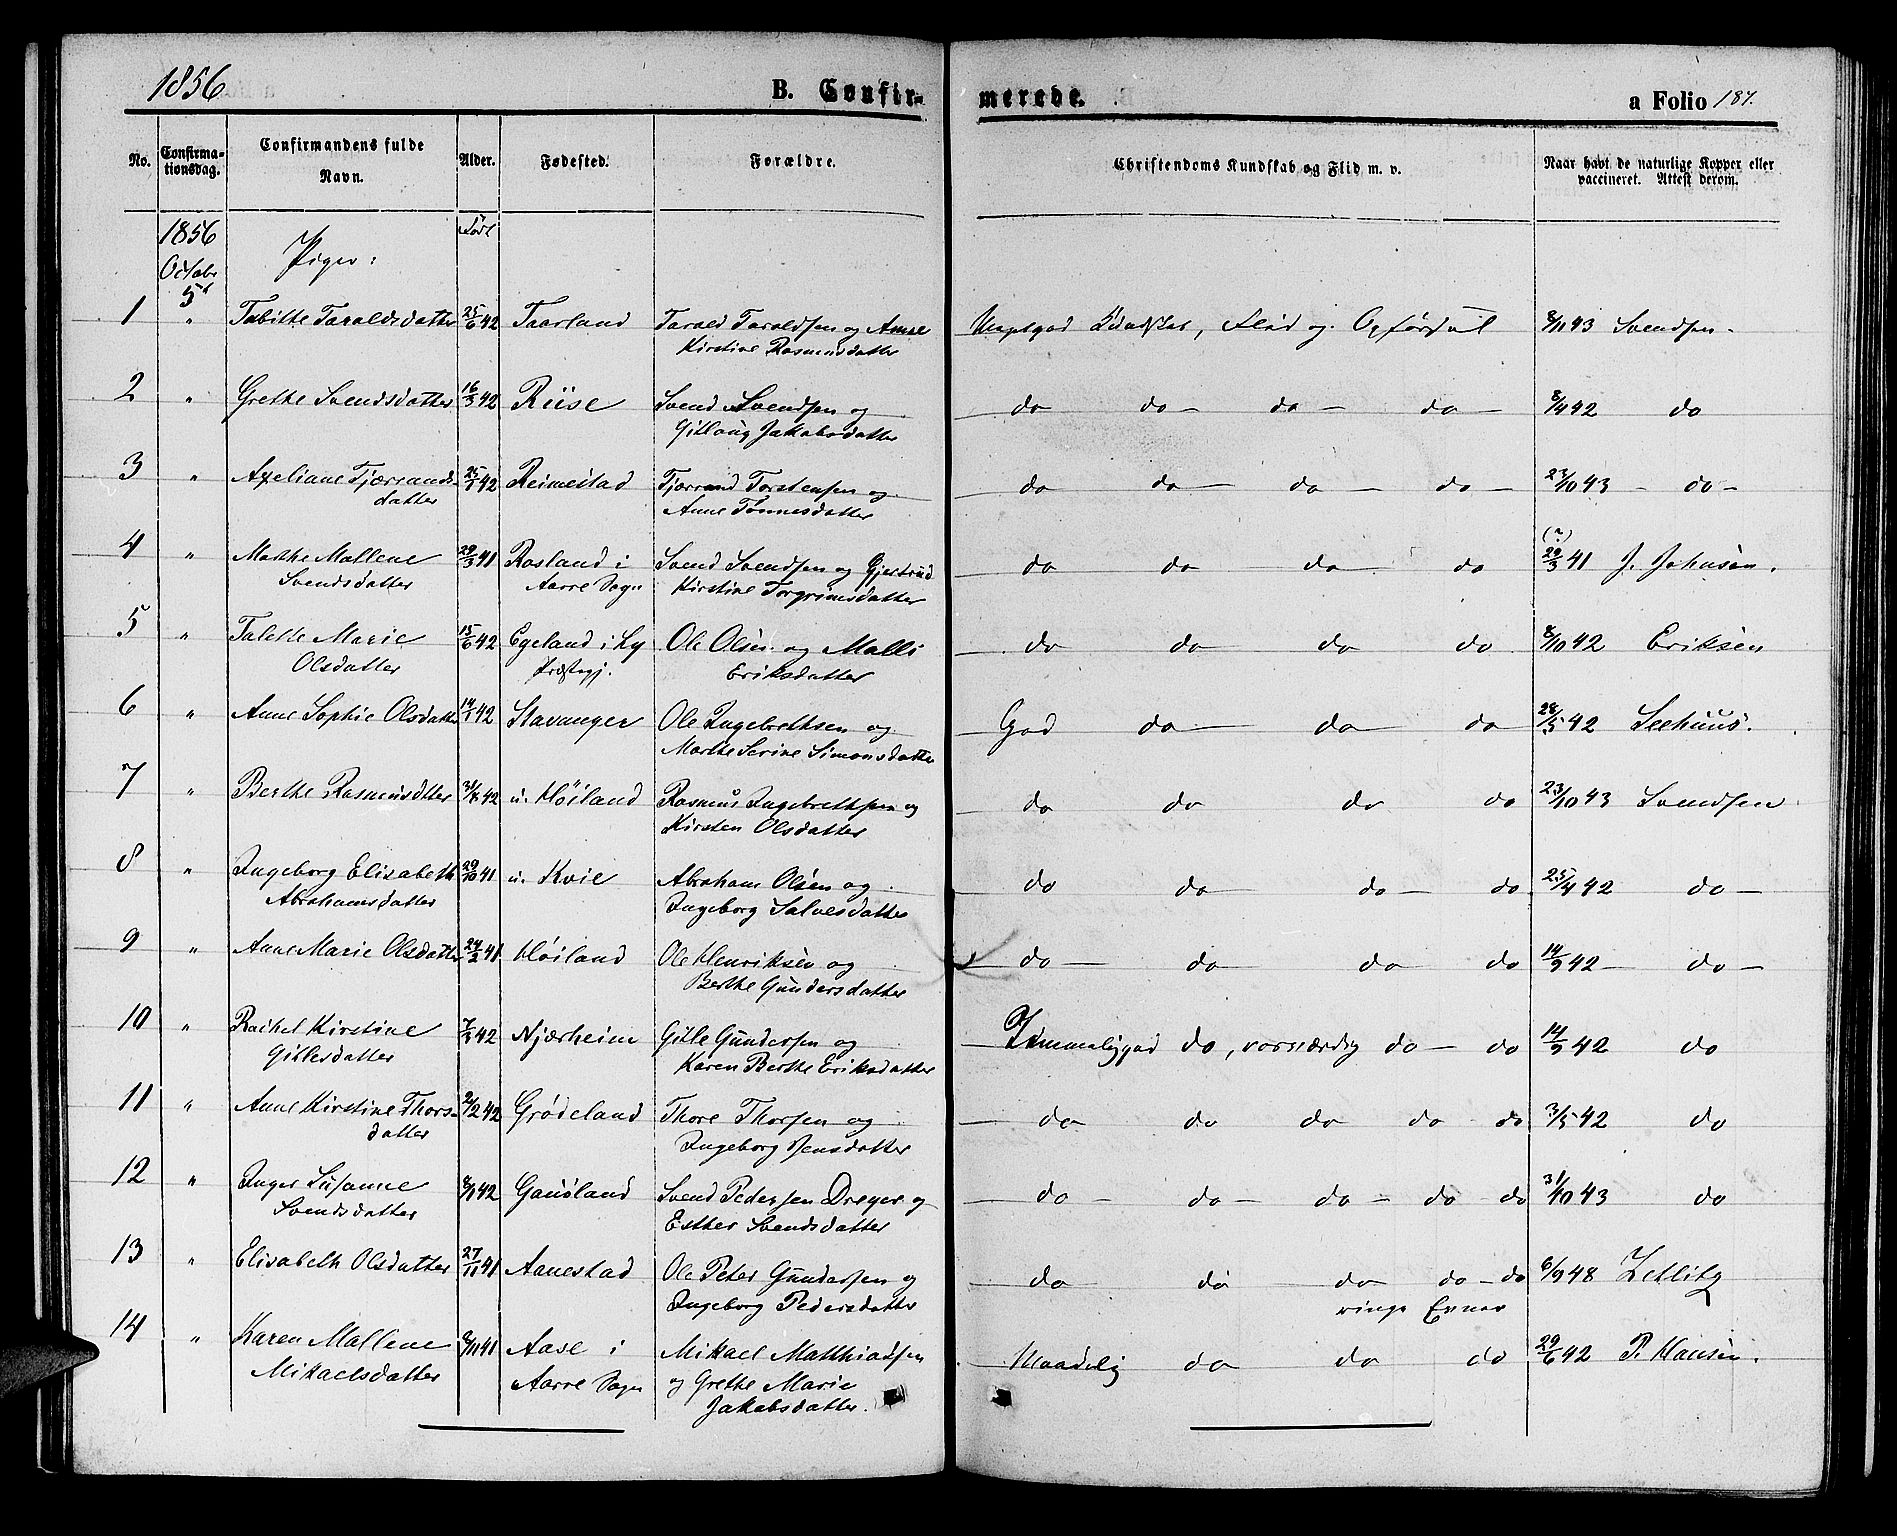 1856
B. Confir-
merede.
a Folio 187.
No.
Confirma-
tionsdag.
Confirmandens fulde
Navn.
Alder.
Fødested.
Forældre.
Christendoms Kundskab og Flid m. v.
Naar havt de naturlige Kopper eller
vaccineret. Attest derom.
1856
Octobr
5t
Piger:
Født
1 " Tabitte Taroldsdatter 25/6 42 Taarland Tarold Taroldsen og Anne Meget god Kundskab, Flid og Opførsel 8/11 43 Svendsen -
Kirstine Rasmusdatter
2 " Grethe Svendsdatter 16/3 42 Riise Svend Svendsen og do do - do - do - 8/4 42 do
Gitlaug Jakobsdatter
3 " Axeliane Tjærands- 25/1 42 Reimestad Tjærand Torstensen og do do - do - do - 23/10 43 - do -
datter Anne Tønnesdatter
(?)
4 " Marthe Mallene 29/3 41 Rosland i Svend Svendsen og Gjertrud do do do - do 29/3 41 J. Johnsen.
Svendsdatter Aarre Sogn Kirstine Torgrimsdatter
5 " Talette Marie 15/6 42 Egeland i Ly Ole Olsen og Malli do do do do 8/10 42 Eriksen
Olsdatter Præstegj. Eriksdatter
6 " Anne Sophie Olsdatter 14/1 42 Stavanger Ole Ingebrethsen og God do do do 28/5 42 Seehuus.
Marthe Serine Simonsdatter
7 " Berthe Rasmusdtter 31/8 42 n. Høiland Rasmus Ingebrethsen og do do do do 23/10 43 Svendsen
Kirsten Olsdatter
8 " Ingeborg Elisabeth 29/10 41 n. Kvie Abraham Olsen og do do do - do 25/4 42 do -
Abrahamsdatter Ingeborg Salvesdatter
9 " Anne Marie Olsdatter 24/2 41 Høiland Ole Henriksen og do - do do do 14/9 42 - do -
Berthe Gundersdatter
10 " Rachel Kirstine 42 Njærheim Gitle Gundersen og Temmelig god do, do - do 14/9 42 do
Gitlesdatter Karen Berthe Eriksdatter
11 " Anne Kirstine Thors- 2/2 42 Grødeland Thore Thorsen og do do do do do 3/5 42 do
datter Ingeborg Jensdatter
12 " Inger Susanne 8/1 42 Gausland Svend Pedersen Dreyer og do - do - do - do do 31/10 43 do
Svendsdatter Esther Svendsdatter
13 " Elisabeth Olsdatter 27/11 41 Aanestad Ole Peter Gundersen og do do do do - do 6/9 48 Zetlitz
Ingeborg Pedersdatter ringe Evner
14 " Karen Mallene 8/11 41 Aase i Mikael Matthiadsen Maadelig do do do 29/6 42 P. Hansen.
Mikaelsdatter Aarre Sogn og Grethe Marie
Jakobsdatter.